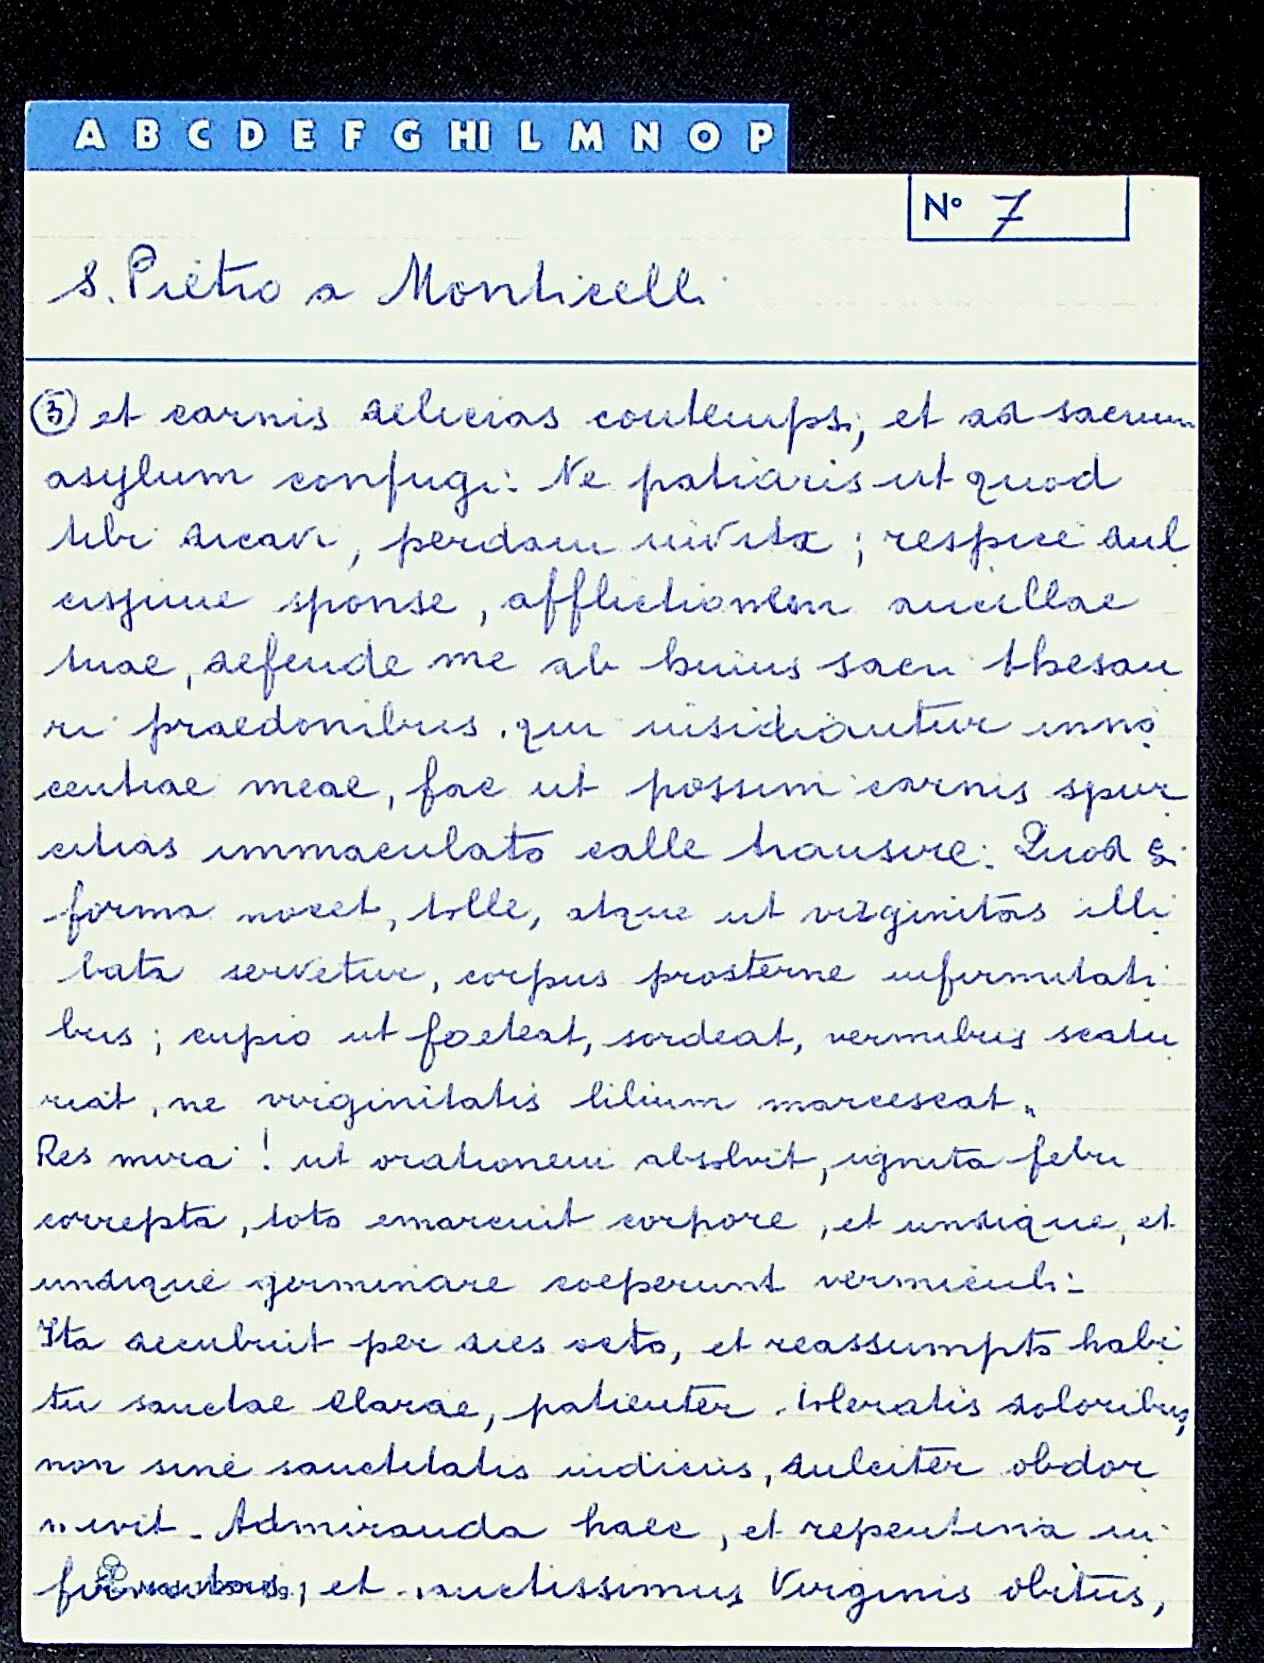 A B C D E F G HI L M N O P
N° 7
S. Pietro a Monticelli
③ et carnis delicias contempsi, et ad sacrum
asylum confugi: Ne patiaris ut quod
tibi dicavi, perdam invita; respice dul
cissime sponse, afflictionem ancillae
tuae, defende me ab huius sacri thesau
ri praedonibus, qui insidiantur inno
centiae meae, fac ut possim carnis spur
citias immaculato calle transire: Quod si
forma nocet, tolle, atque ut virginitas illi
bata servetur, corpus prosterne infirmitati
bus; cupio ut foeteat, sordeat, vermibus scatu
riat, ne virginitatis lilium marcescat"
Res mira! ut orationem absolvit, ignita febri
correpta, toto emarcuit corpore, et undique, et
undique germinare coeperunt vermiculi:
Ita decubuit per dies octo, et reassumpto habi
tu sanctae Clarae, patienter toleratis doloribus,
non sine sanctitatis indiciis, dulciter obdor
mivit. Admiranda haec, et repentina in
firmitas, et sanctissimus Virginis obitus,